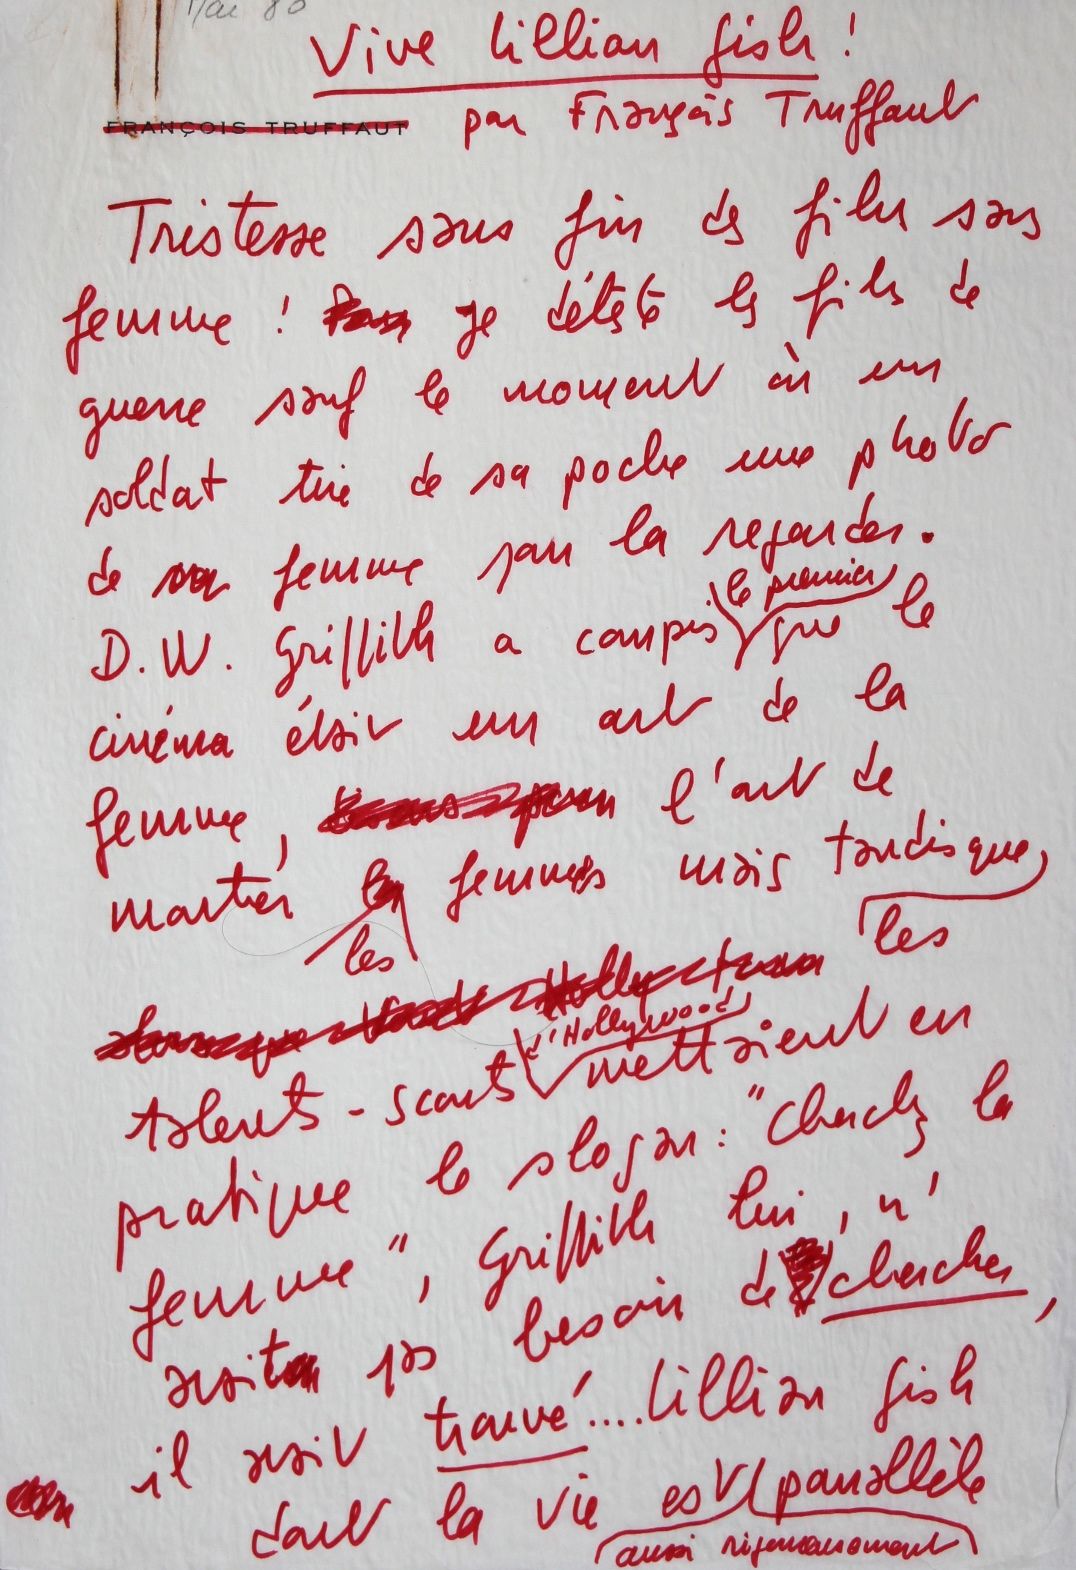 Mai 80
Vive Lillian Gish !
FRANÇOIS TRUFFAUT par François Truffaut
Tristesse sans fin des films sans
femme ! Je déteste les films de
guerre sauf le moment où un
soldat tire de sa poche une photo
de femme pour la regarder.
D.W. Griffith a compris le premier que le
cinéma était un art de la
femme, l'art de
montrer les femmes mais tandis que
les
talents-scouts d'Hollywood mettaient en
pratique le slogan : "Cherchez la
femme", Griffith lui, n'
avait pas besoin de chercher,
il avait trouvé .... Lillian Gish
dont la vie est aussi rigoureusement parallèle